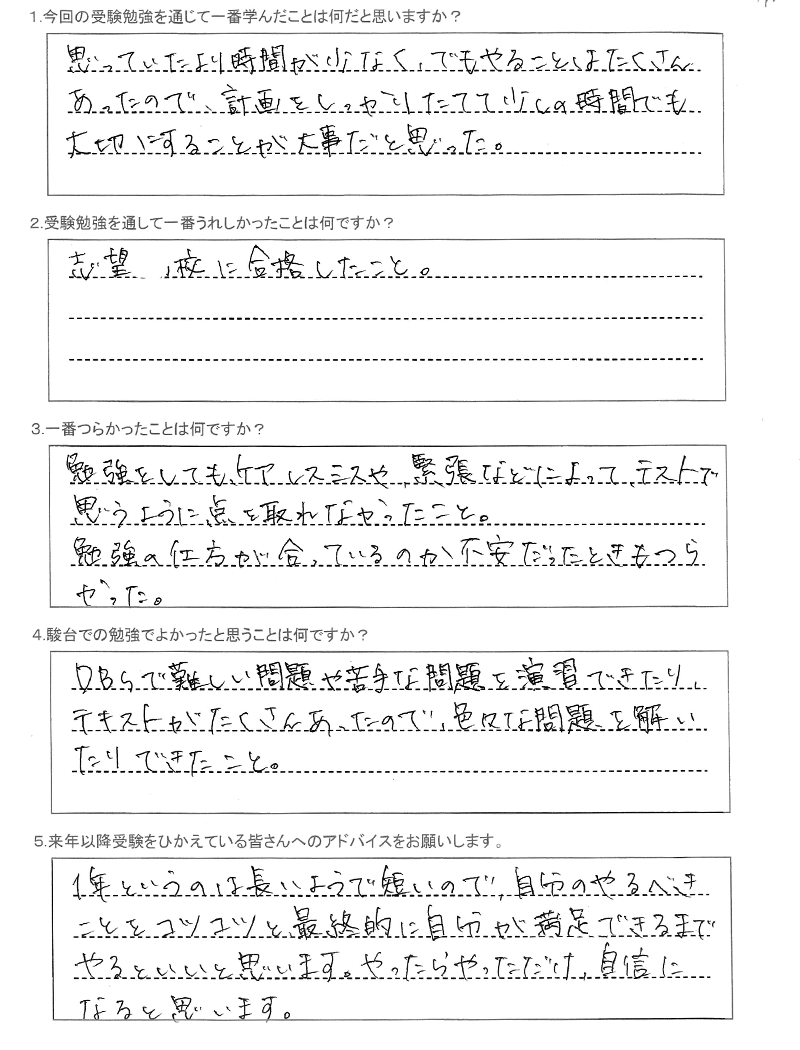 1.今回の受験勉強を通じて一番学んだことは何だと思いますか？
思っていたより時間が少なく、でもやることはたくさん
あったので、計画をしっかりたてて少しの時間でも
大切にすることが大事だと思った。
2.受験勉強を通して一番うれしかったことは何ですか？
志望 校に合格したこと。
3.一番つらかったことは何ですか？
勉強をしても、ケアレスミスや、緊張などによって、テストで
思うように点を取れなかったこと。
勉強の仕方が合っているのか不安だったときもつら
かった。
4.駿台での勉強でよかったと思うことは何ですか？
DBSで難しい問題や苦手な問題を演習できたり、
テキストがたくさんあったので、色々な問題を解い
たりできたこと。
5.来年以降受験をひかえている皆さんへのアドバイスをお願いします。
1年というのは長いようで短いので、自分のやるべき
ことをコツコツと最終的に自分が満足できるまで
やるといいと思います。やったらやっただけ、自信に
なると思います。